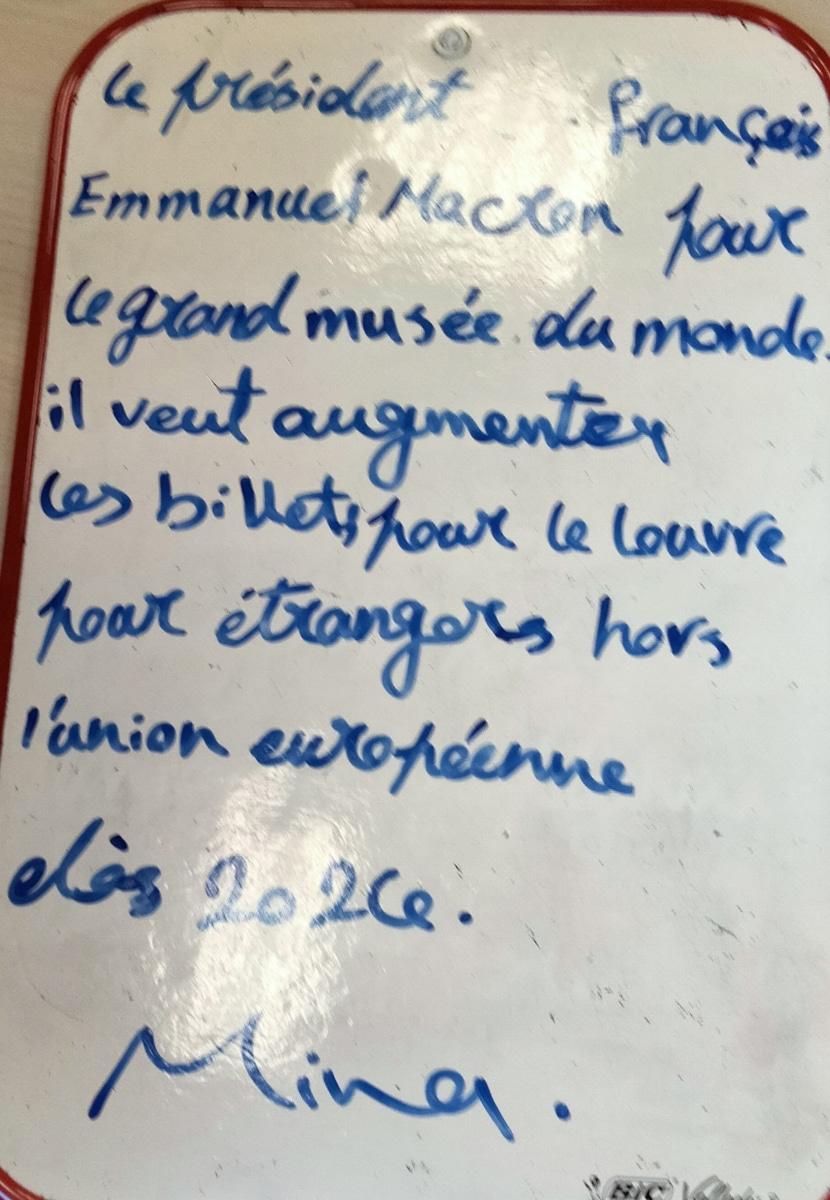 Le président français
Emmanuel Macron pour
le grand musée du monde.
il veut augmenter
les billets pour le louvre
pour étrangers hors
l'union européenne
dès 2026.
Mina.
BIC